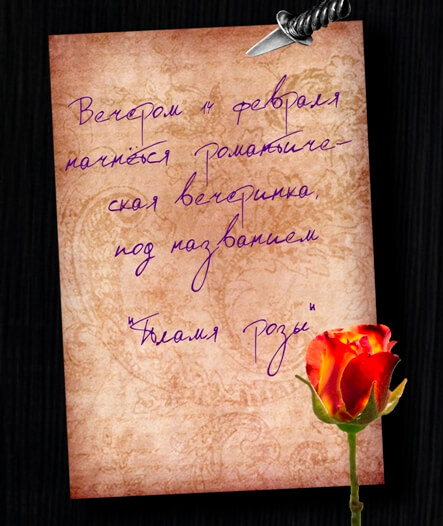 Вечером 14 февраля
начнётся романтиче-
ская вечеринка,
под названием
"Пламя розы"